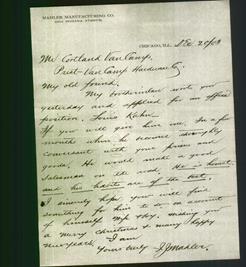 MAHLER MANUFACTURING CO.
CHICAGO, ILL. Dec. 20/08
Mr Cortland Van Camp,
Prest-Van Camp Hardware Co
My old friend.
My brother in law was with you
yesterday and applied for an office
position, Louis Kahn.
If you will give him, in a few
months when he becomes thoroughly
conversant with your prices and
goods, He would make a good
salesman on the road, He is honest
and his habits are of the best,
I sincerely hope you will find
something for him to do on account
of himself, wife & boy, wishing you
a merry christmas & many happy
new years, I am
Yours truly
Mahler.